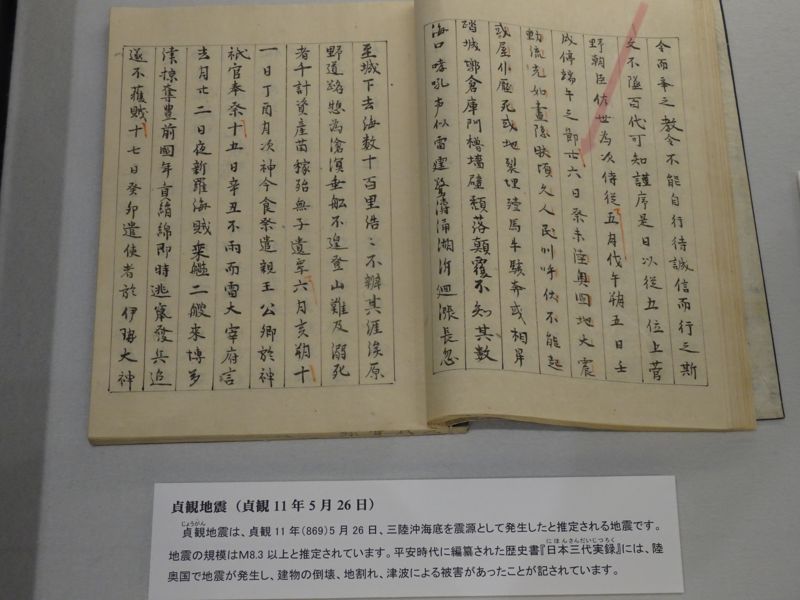 令而奉之教令不能自行待誠信而行之斯
文不墜百代可知謹序是日以從五位上菅
野朝臣佐世為次侍從五月戊午朔五日壬
戌停端午之節廿六日癸未陸奥國地大震
動流光如晝隠映頃之人民叫呼伏不能起
或屋仆壓死或地裂埋殪馬牛駭奔或相昇
踏城郭倉庫門櫓墻壁頽落顛覆不知其数
海口哮吼声似雷霆驚濤涌潮泝洄漲長忽
至城下去海数十百里浩々不辨其涯涘原
野道路惣為滄溟乗船不遑登山難及溺死
者千計資産苗稼殆無孑遺焉六月亥朔十
一日丁酉月次神今食祭遣親王公卿於神
祇官奉祭十五日辛丑不雨而雷大宰府言
去月廿二日夜新羅海賊乗艦二艘来博多
津掠奪豊前國年貢絹綿即時逃竄發兵追
遂不獲賊十七日癸卯遣使者於伊勢大神
貞観地震（貞観11年5月26日）
じょうがん
貞観地震は、貞観11年（869）5月26日、三陸沖海底を震源として発生したと推定される地震です。
にほんさんだいじつろく
地震の規模はM8.3以上と推定されています。平安時代に編纂された歴史書『日本三代実録』には、陸
奥国で地震が発生し、建物の倒壊、地割れ、津波による被害があったことが記されています。